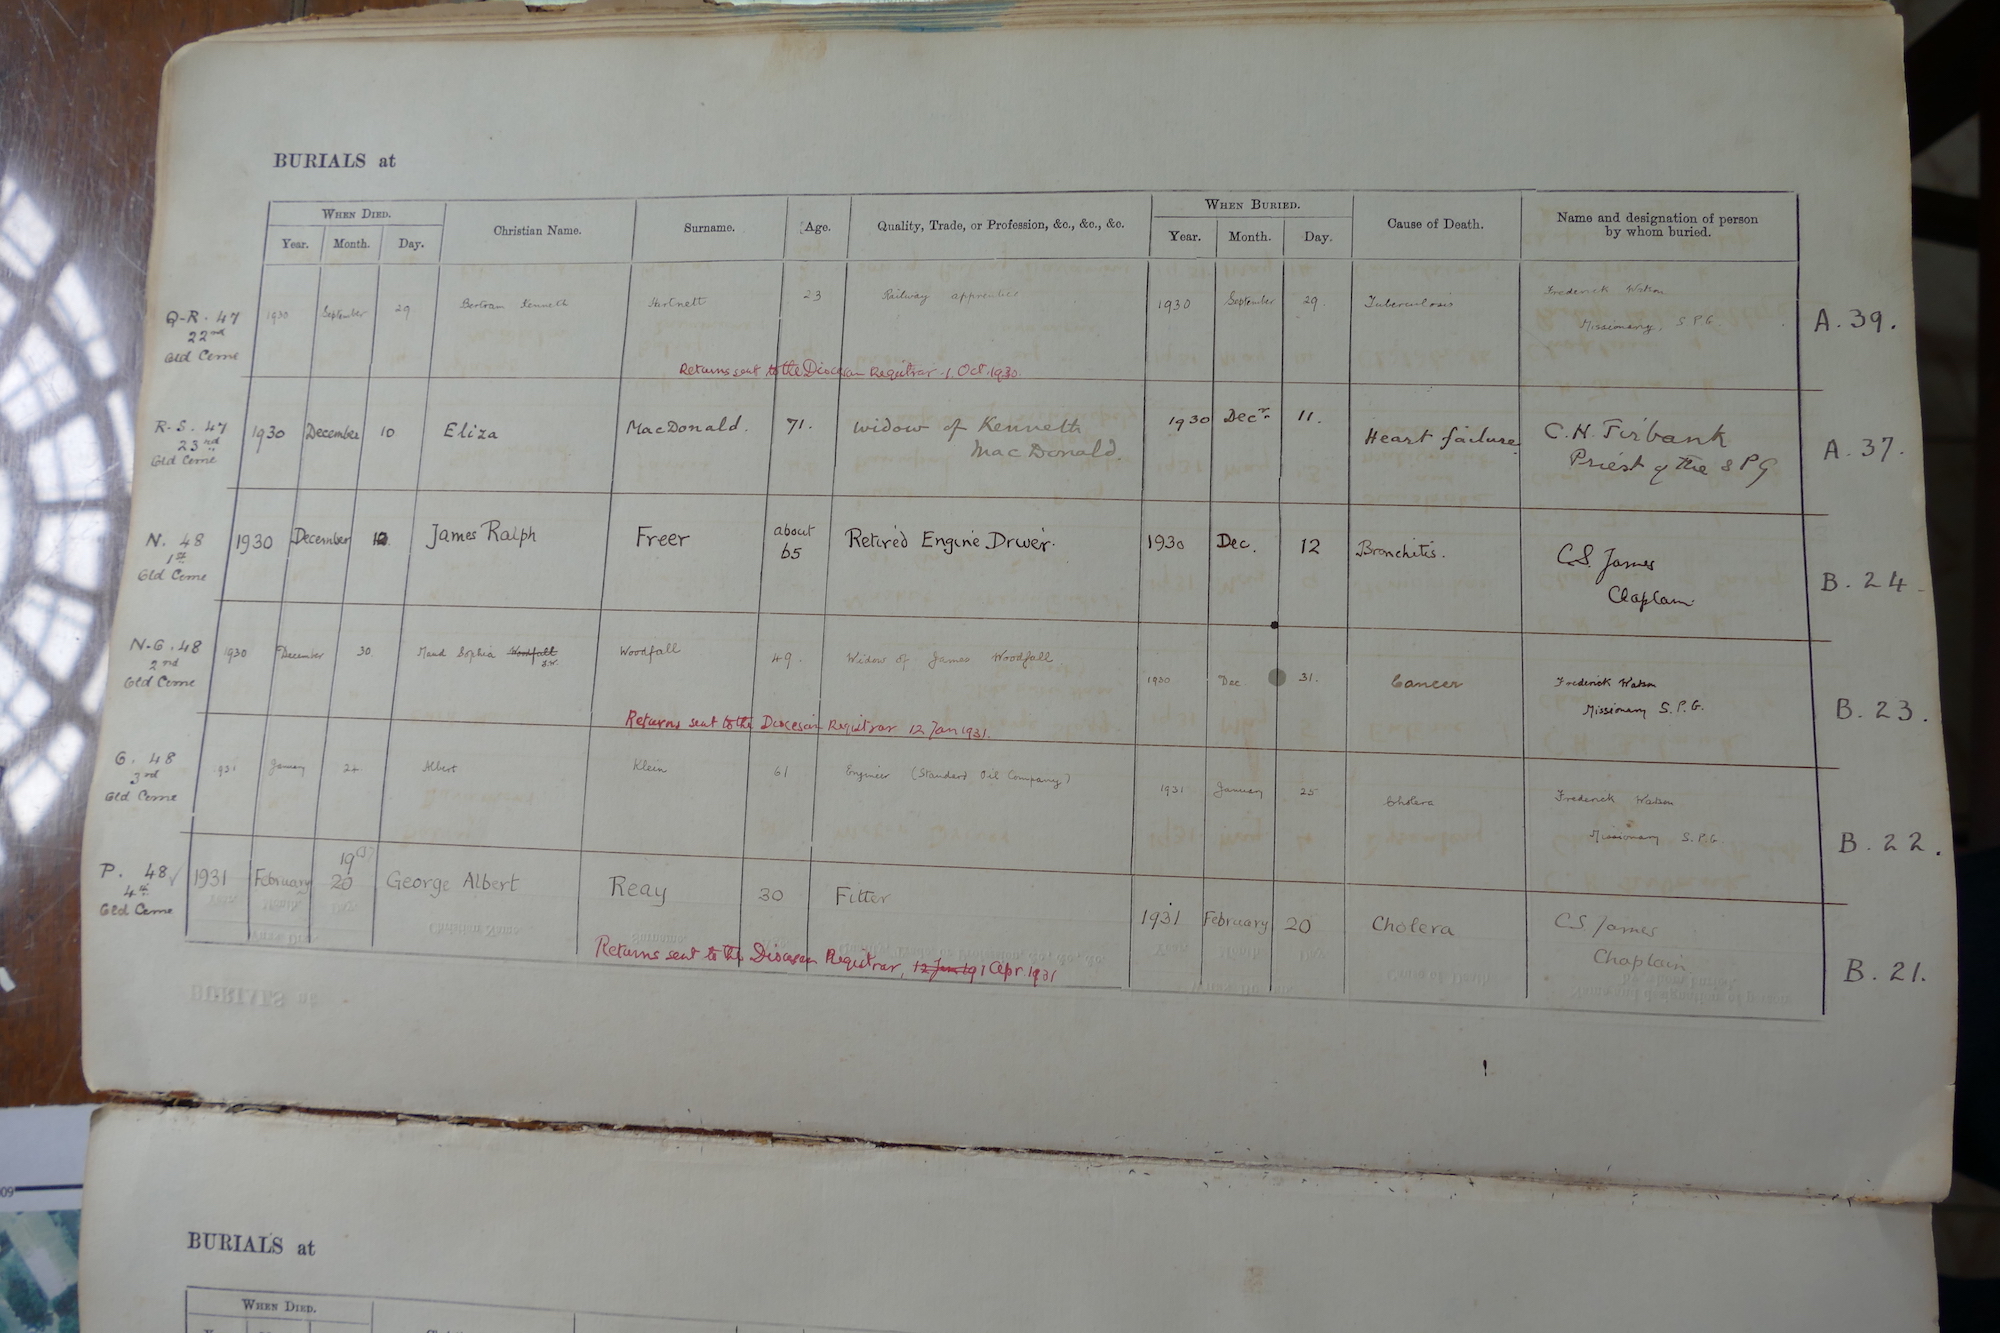 BURIALS at
When Died. Christian Name. Surname. Age. Quality, Trade, or Profession, &c., &c., &c. When Buried. Cause of Death. Name and designation of person by whom buried.
Year. Month. Day. Year. Month. Day.
Q-R. 47 22nd Old Ceme 1930 September 29 Bertram Kenneth Hartnett 23 Railway apprentice 1930 September 29. Tuberculosis Frederick Watson Missionary, S.P.G. A.39.
Returns sent to the Diocesan Registrar 1. Oct. 1930.
R-S. 47 23rd Old Ceme 1930 December 10 Eliza MacDonald. 71. widow of Kenneth MacDonald. 1930 Decr. 11. Heart failure C.H. Firbank Priest of the S P G A.37.
N. 48 1st Old Ceme 1930 December 12. James Ralph Freer about 65 Retired Engine Driver. 1930 Dec. 12 Bronchitis. C.S. James Chaplain B.24
2nd Old Ceme 1930 December 30. Maud Sophia Woodfall Woodfall 49. Widow of James Woodfall 1930 Dec. 31. Cancer Frederick Watson Missionary S.P.G. B.23.
Returns sent to the Diocesan Registrar 12 Jan 1931.
48 3rd Old Ceme 1931 January 24 Albert Klein 61 Engineer (Standard Oil Company) 1931 January 25 Cholera Frederick Watson Missionary S.P.G. B.22.
P. 48 4th Old Ceme 1931 February 19 20 George Albert Reay 30 Fitter 1931 February 20 Cholera C.S. James Chaplain B.21.
Returns sent to the Diocesan Registrar, 12 Jan 19 1 Apr. 1931
BURIALS at
When Died.
09